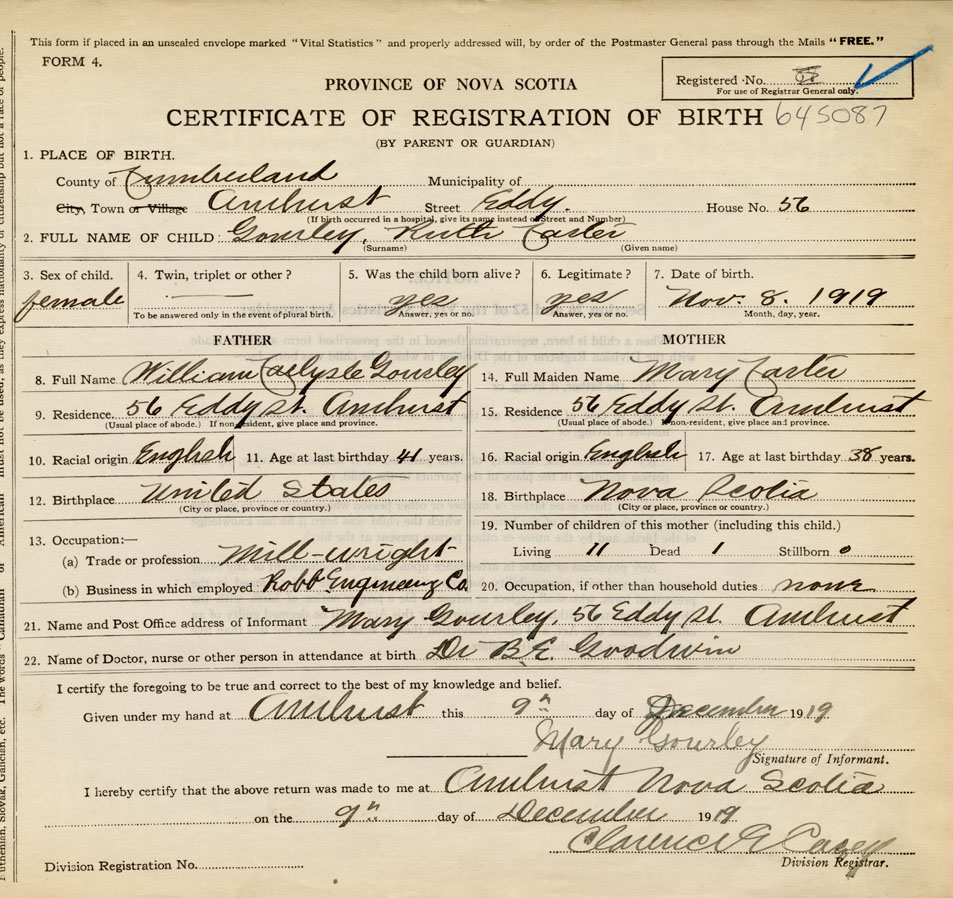 This form if placed in an unsealed envelope marked "Vital Statistics" and properly addressed will, by order of the Postmaster General pass through the Mails "FREE."
FORM 4.
Registered No.
For use of Registrar General only.
PROVINCE OF NOVA SCOTIA
CERTIFICATE OF REGISTRATION OF BIRTH 645087
(BY PARENT OR GUARDIAN)
1. PLACE OF BIRTH.
County of Cumberland Municipality of
City, Town or Village Amherst Street Eddy. House No. 56
(If birth occurred in a hospital, give its name instead of Street and Number)
2. FULL NAME OF CHILD Gourley, Ruth Carter
(Surname) (Given name)
3. Sex of child. 4. Twin, triplet or other? 5. Was the child born alive? 6. Legitimate? 7. Date of birth.
female yes yes Nov. 8. 1919
To be answered only in the event of plural birth. Answer, yes or no. Answer, yes or no. Month, day, year.
FATHER MOTHER
8. Full Name William Carlysle Gourley 14. Full Maiden Name Mary Carter
9. Residence 56 Eddy St. Amherst 15. Residence 56 Eddy St. Amherst
(Usual place of abode.) If non-resident, give place and province. (Usual place of abode.) If non-resident, give place and province.
10. Racial origin English 11. Age at last birthday 41 years. 16. Racial origin English 17. Age at last birthday 38 years.
12. Birthplace United States 18. Birthplace Nova Scotia
(City or place, province or country.) (City or place, province or country.)
13. Occupation:— 19. Number of children of this mother (including this child.)
(a) Trade or profession Mill-wright Living 11 Dead 1 Stillborn 0
(b) Business in which employed Robb Engineering Co. 20. Occupation, if other than household duties none
21. Name and Post Office address of Informant Mary Gourley, 56 Eddy St. Amherst
22. Name of Doctor, nurse or other person in attendance at birth Dr B.E. Goodwin
I certify the foregoing to be true and correct to the best of my knowledge and belief.
Given under my hand at Amherst this 9th day of December 1919
Mary Gourley
Signature of Informant.
I hereby certify that the above return was made to me at Amherst Nova Scotia
on the 9th day of December 1919.
Clarence E Casey
Division Registrar.
Division Registration No.